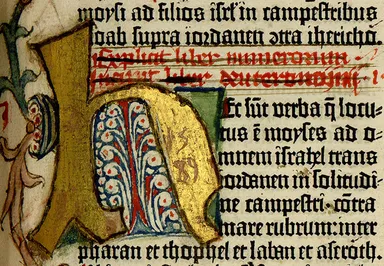 moysi ad filios isrl̄ in campestribus
moab supra iordanen ↄtra iherichō.
Explicit liber numerorum
Incipit liber deuteronomij
Ec sūt verba q̄ locu-
tus ē moyses ad o-
mnem israhel trans
iordanen in solitudi-
ne campestri. cōtra
mare rubrum: inter
pharan et thophel et laban et aseroth.